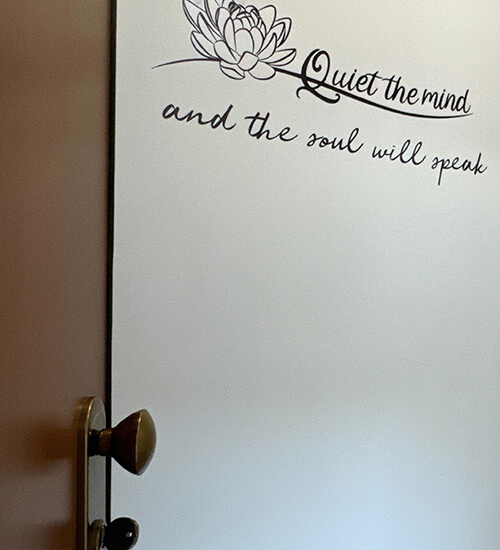 Quiet the mind
and the soul will speak